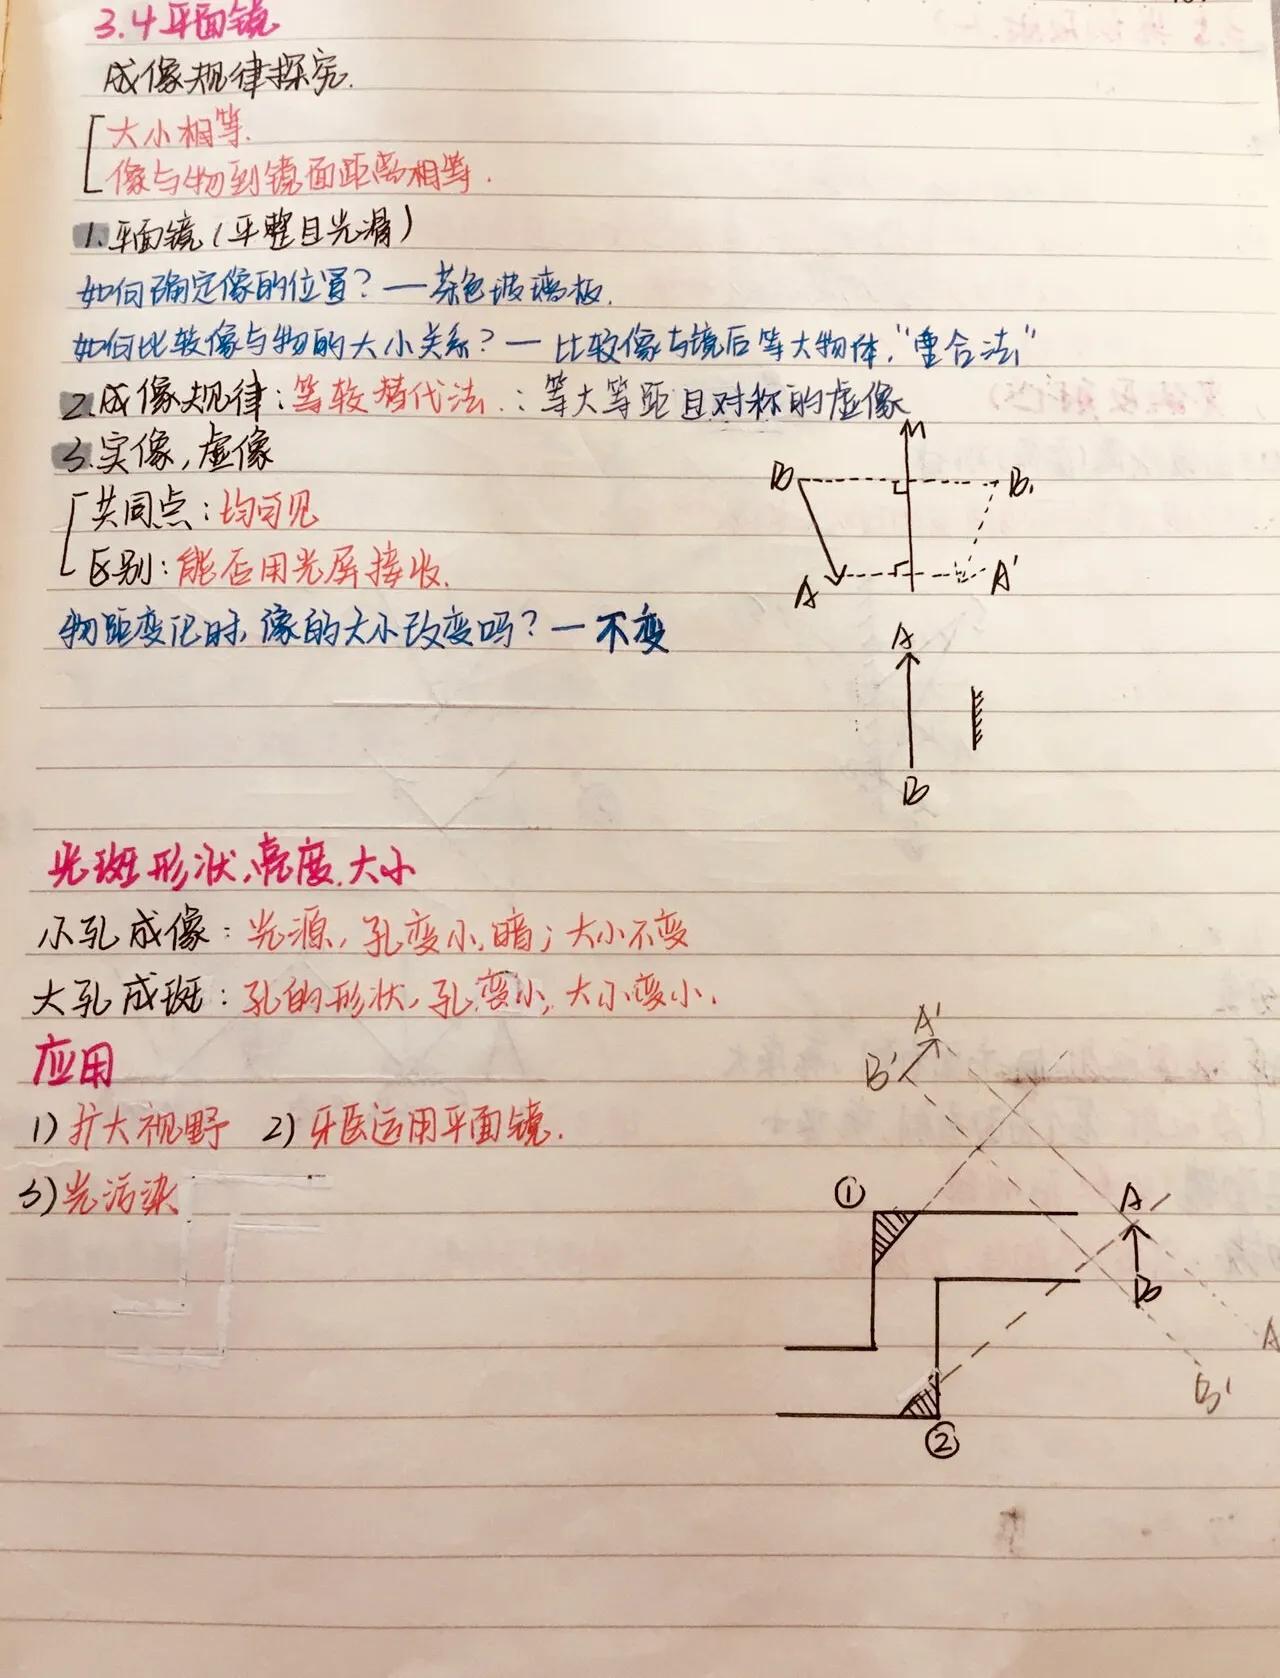 3.4平面镜
成像规律探究.
大小相等.
像与物到镜面距离相等.
1.平面镜(平整且光滑)
如何确定像的位置?—茶色玻璃板.
如何比较像与物的大小关系?—比较像与镜后等大物体."重合法"
2.成像规律:等较替代法.:等大等距且对称的虚像
3.实像,虚像
M
B B1
共同点:均可见
区别:能否用光屏接收.
A A'
物距变化时,像的大小改变吗?—不变
A
B
光斑形状,亮度.大小
小孔成像:光源,孔变小,暗;大小不变
大孔成斑:孔的形状,孔变小,大小变小.
应用
A'
B'
1)扩大视野 2)牙医运用平面镜.
3)光污染
① A
B
A
B'
②